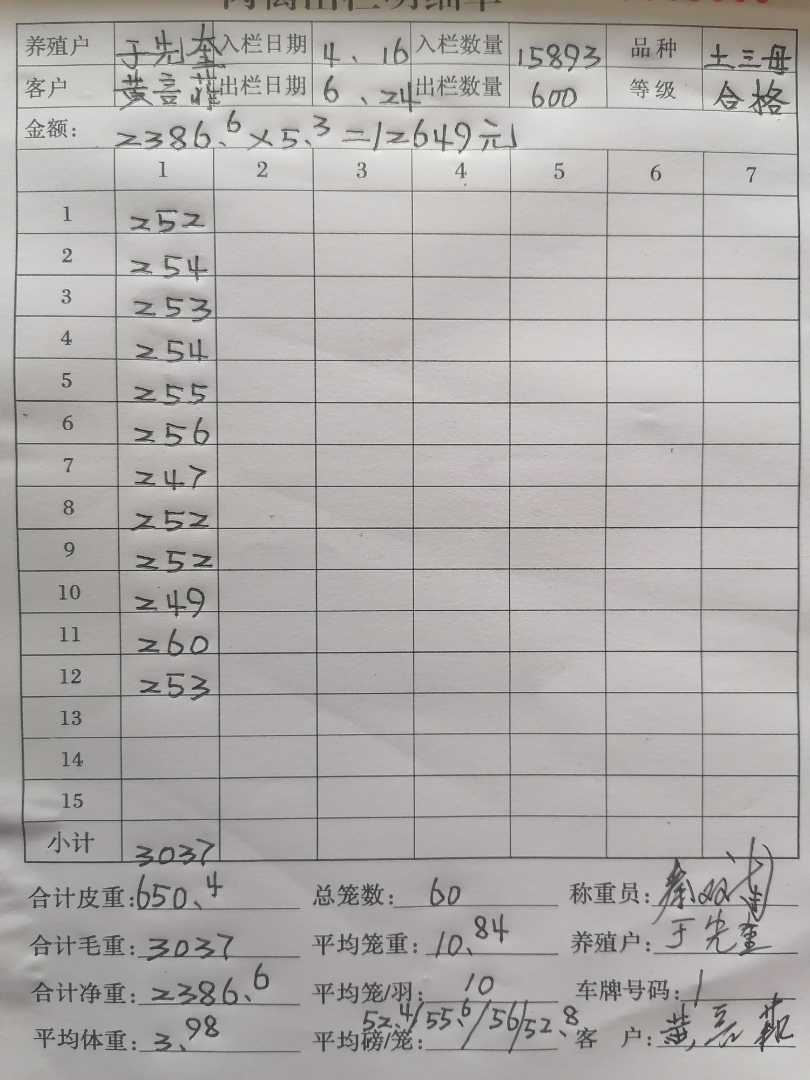 养殖户 于先奎 入栏日期 4、16 入栏数量 15893 品种 土三母
客户 出栏日期 6、24 出栏数量 600 等级 合格
金额: 2386.6×5.3=12649元
1 2 3 4 5 6 7
1 252
2 254
3 253
4 254
5 255
6 256
7 247
8 252
9 252
10 249
11 260
12 253
13
14
15
小计 3037
合计皮重:650.4 总笼数: 60 称重员:
合计毛重: 3037 平均笼重: 10.84 养殖户: 于先奎
合计净重: 2386.6 平均笼/羽: 10 车牌号码: 1
平均体重: 3.98 平均磅/笼: 52.4/55.6/56/52.8 客 户: